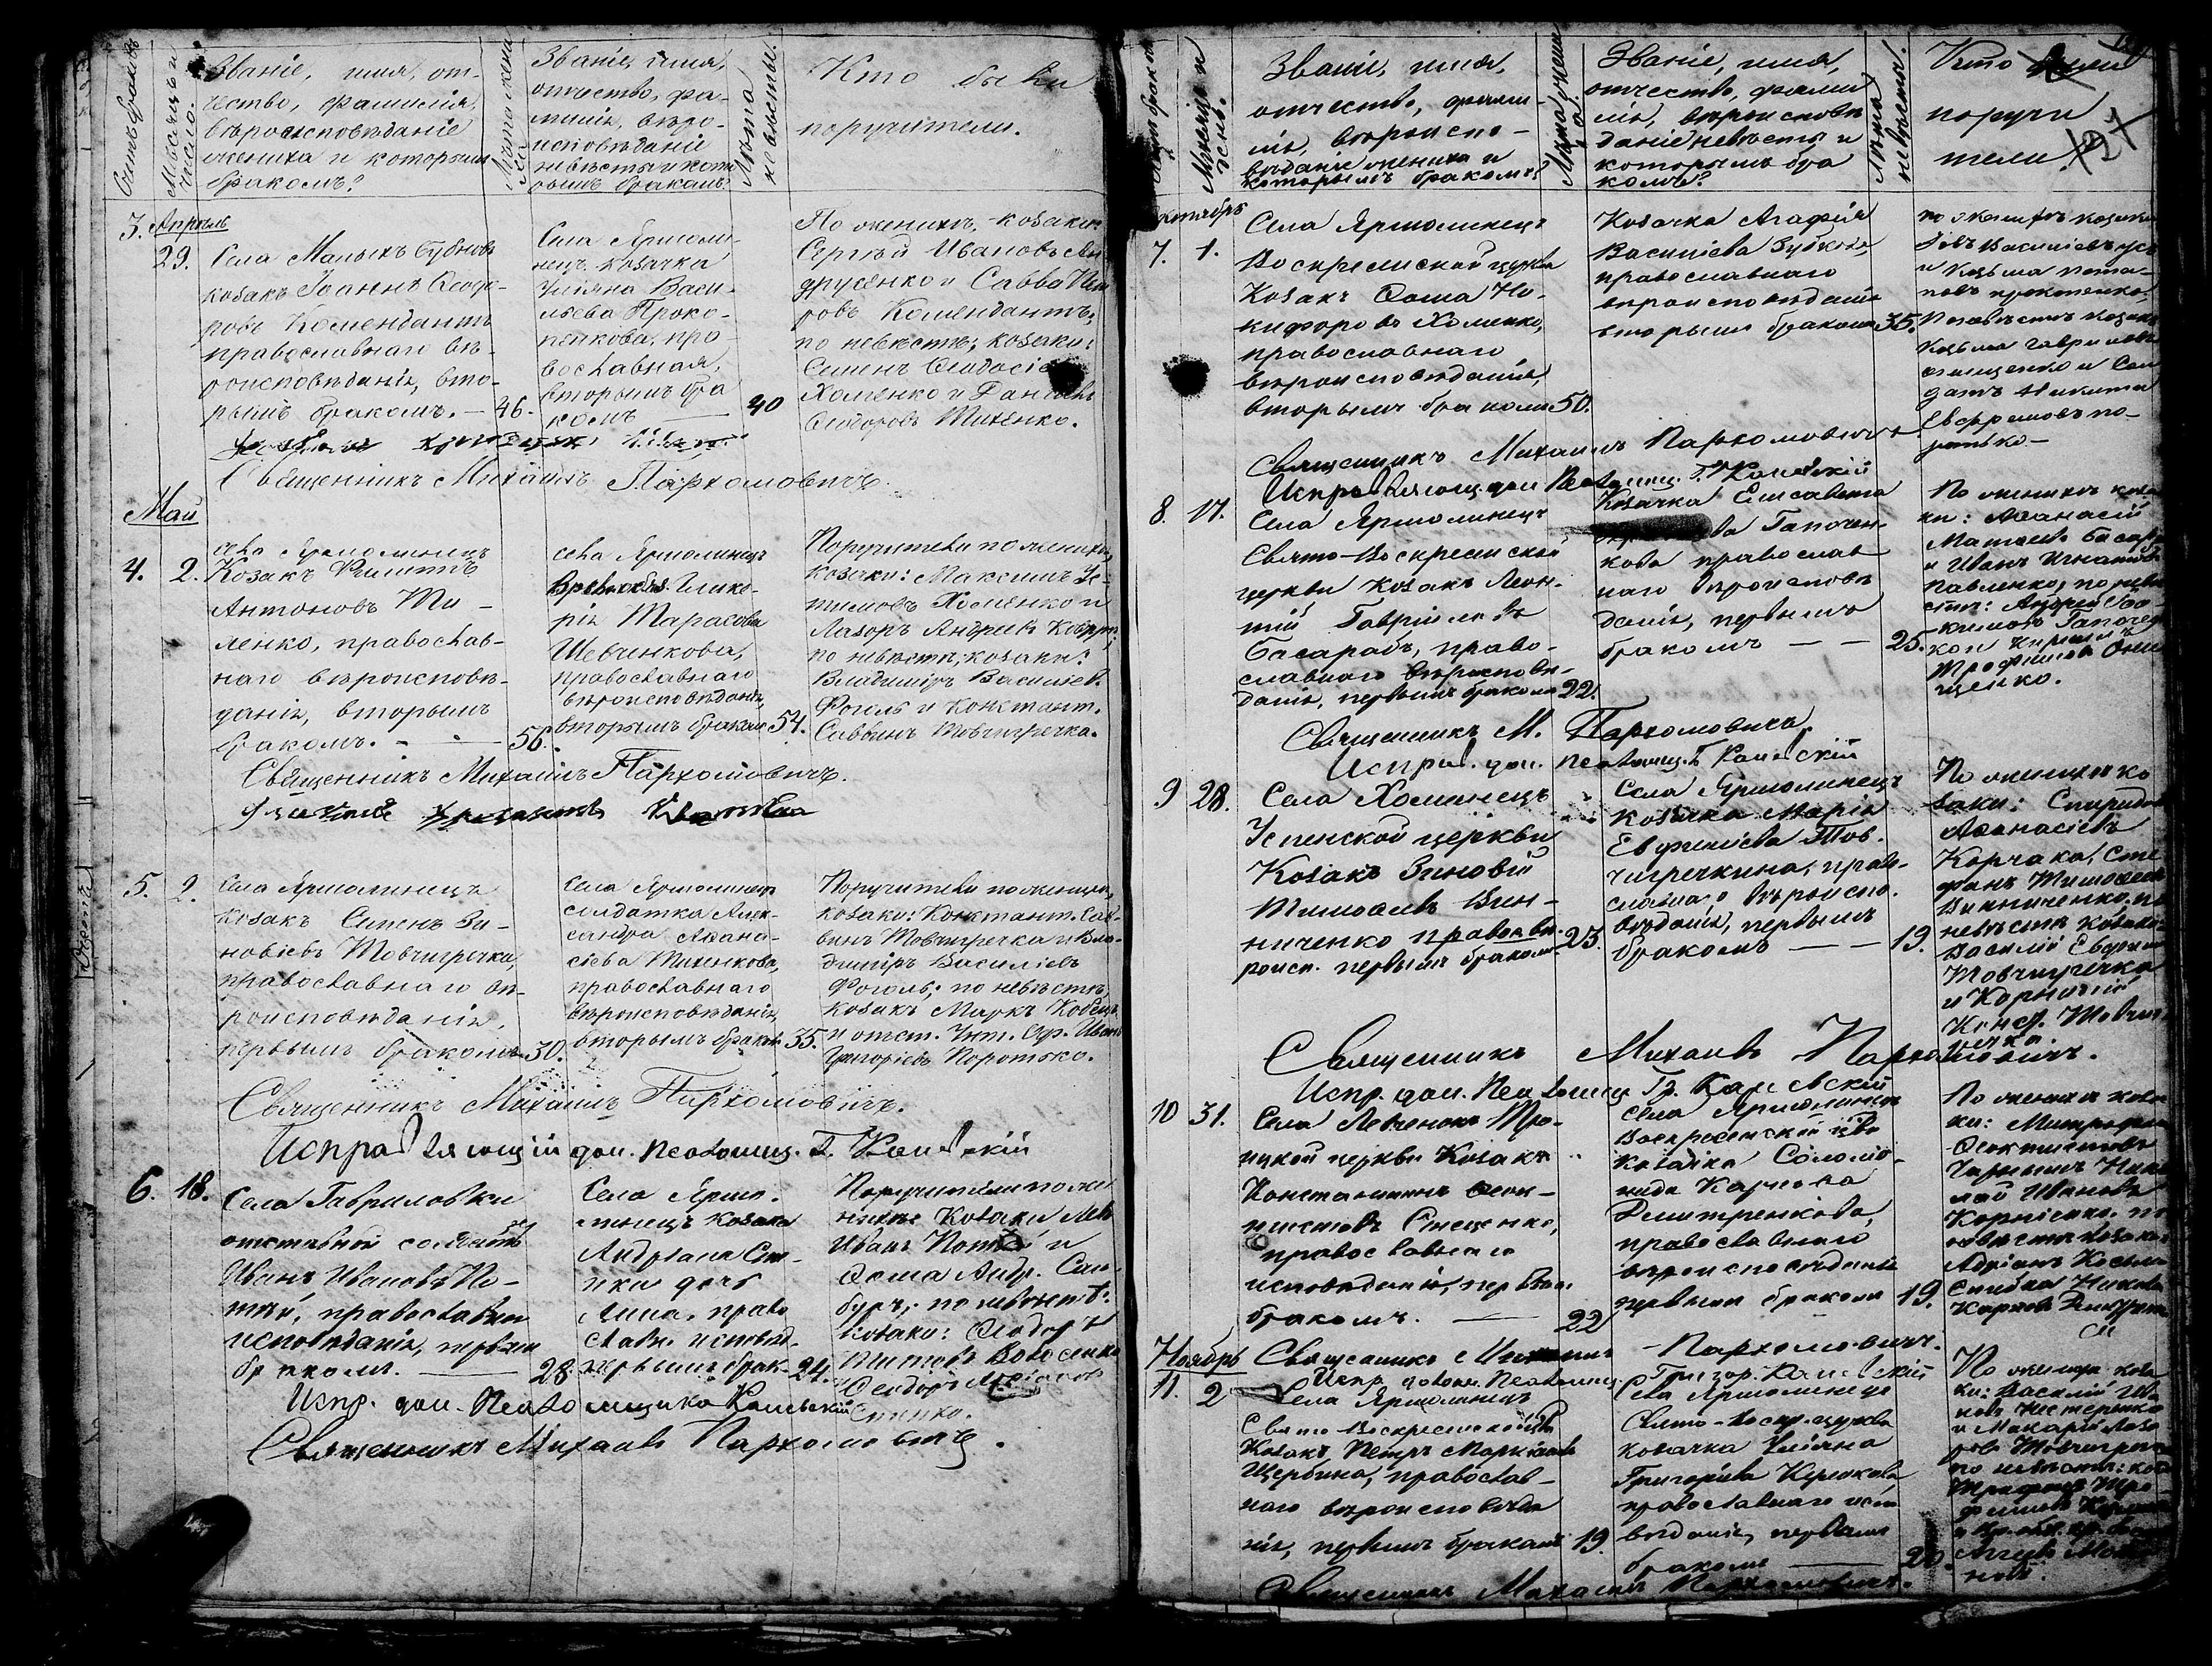 Счетъ браковъ
Мѣсяцъ и число.
Званіе, имя, от-
чество, фамилія,
вѣроисповѣданіе
жениха и которымъ
бракомъ?
Лѣта жениха
Званіе, имя,
отчество, фа-
милія, вѣро-
исповѣданіе
невѣсты и кото
рымъ бракомъ?
Лѣта невѣсты.
Кто были
поручители.
3. Апрѣль
29.
Села Малыхъ Бубновъ
козакъ Іоаннъ Ѳеодо-
ровъ Комендантъ
православнаго вѣ-
роисповѣданія, вто-
рымъ бракомъ. — 46.
Села Ярмоли-
нецъ козачка
Уліяна Васи-
льева Проко-
пенкова, пра-
вославная,
вторымъ бра
комъ — 40
По женихѣ, козаки
Сергѣй Ивановъ Ан
друсенко и Савва
ровъ Комендантъ;
по невѣстѣ; козаки:
Семенъ Ѳеодосіе
Хоменко и Даніилъ
Ѳеодоровъ Тихенко.
Священникъ Михаилъ Пархомовичъ.
Май
4. 2.
села Ярмолинецъ
Козакъ Филиппъ
Антоновъ Ти-
ленко, православ-
наго вѣроисповѣ-
данія, вторымъ
бракомъ. — 56.
села Ярмолинецъ
Глике-
рія Тарасова
Шевченкова,
православнаго
вѣроисповѣданія,
вторымъ бракомъ 54.
Поручители по женихѣ,
козаки: Максимъ Ус-
тимовъ Хоменко и
Лазорь Андреевъ
по невѣстѣ; козаки:
Владиміръ Васильев.
Фоголь и Констант.
Саввинъ Товчигречка.
Священникъ Михаилъ Пархомовичъ.
5. 2.
Села Ярмолинецъ
козакъ Семенъ Зи-
новіевъ Товчигречка,
православнаго вѣ-
роисповѣданія,
первымъ бракомъ 30.
Села Ярмолинецъ
солдатка Алек-
сандра Аѳана-
сіева Тихенкова,
православнаго
вѣроисповѣданія,
вторымъ браком. 35.
Поручители по женихѣ,
козаки: Констант. Сав-
винъ Товчигречка и Вла-
диміръ Василіевъ
Фоголь; по невѣстѣ,
козакъ Маркъ Кобецъ
и отст. Унт. Оф. Иванъ
Григорьевъ Поротько.
Священникъ Михаилъ Пархомовичъ.
Исправляющій дол. Псаломщ. Г. Каневскій
6. 18.
Села Гавриловки
отставной солдатъ
Иванъ Ивановъ По-
тій, православнаго
исповѣданія, первымъ
бракомъ. — 28.
Села Ярмо-
линецъ козака
Андріана
дочь
Анна, право
славн. исповѣд.
первымъ брак. 24.
Поручители по же
нихѣ: Козаки
Иванъ Потій и
Ѳома Андр.
по невѣстѣ:
козаки: Ѳеодоръ
Титовъ
Ѳеодоръ
Испр. дол. Псаломщика Каневскій
Священникъ Михаилъ Пархомовичъ.
Мѣсяцъ и день.
Званіе, имя,
отчество, фами-
лія, вѣроиспо-
вѣданіе жениха и
которымъ бракомъ?
Званіе, имя,
отчество, фами
лія, вѣроисповѣ
даніе невѣсты и
которымъ бра
комъ?
Лѣта невѣсты.
Кто были
поручи
тели.
127
Октябрь
7. 1.
Села Ярмолинецъ
Воскресенской церкви
Козакъ Ѳома Ни-
кифоровъ Хоменко,
православнаго
вѣроисповѣданія,
вторымъ бракомъ 50.
Козачка Агафія
Василіева Зубкова,
православнаго
вѣроисповѣданія
вторымъ бракомъ 35.
по женихѣ козаки
и Кузьма Пота-
повъ Прокопенко,
По невѣстѣ козаки
Кузьма Гавриловъ
Онищенко и Сол
датъ Никита
Евфремовъ По-
ротько —
Священникъ Михаилъ Пархомовичъ
Исправляющ. дол. Псаломщ. Г. Каневскій
8. 17.
Села Ярмолинецъ
Свято-Воскресенской
церкви козакъ Леон-
тій Гавріиловъ
Басарабъ, право-
славнаго вѣроисповѣ-
данія, первымъ бракомъ 22.
Козачка Елисавета
Гапочен-
кова православ
наго вѣроисповѣ
данія, первымъ
бракомъ — — 25.
По женихѣ коза
ки: Аѳанасій
Матвѣевъ Басараб
и Иванъ Игнатовъ
Павленко, по невѣ
стѣ: Андрей
кимовъ Гапочен
ко и Кириллъ
Трофимовъ Они
щенко.
Священникъ М. Пархомовичъ,
Исправ. дол. Псаломщ. Г. Каневскій
9 28.
Села Хоминецъ
Успенской церкви
Козакъ Зиновій
Тимоѳеевъ Вин-
ниченко православ. вѣ-
роисп. первымъ бракомъ. 23.
Села Ярмолинецъ
козачка Марія
Евфиміева Тов-
чигречкина, право-
славнаго вѣроиспо-
вѣданія, первымъ
бракомъ — — 19.
По женихѣ ко
заки: Спиридонъ
Аѳанасіевъ
Корчака, Сте
фанъ Тимоѳеевъ
Винниченко, по
невѣстѣ козаки:
Василій Евфим
Товчигречка
и Корнилій
Конст. Товчиг
речка.
Священникъ Михаилъ Пархомовичъ.
Испр. дол. Псаломщ. Гр. Каневскій
10 31.
Села Левченокъ Тро-
ицкой церкви Козакъ
Константинъ Ѳеок-
тистовъ Стеценко,
православнаго
исповѣданія, первымъ
бракомъ. — 22
Села Ярмолинецъ
Воскресенской цер
козачка Соломо-
нида Карпова
Дмитренкова,
православнаго
вѣроисповѣданія
первымъ бракомъ 19.
По женихѣ коза
ки: Митрофанъ
Ѳеоктистовъ
Нико
лай Ивановъ
Корніенко, по
невѣстѣ козаки:
Адріанъ Косьм
Никита
Карповъ Дмитрен
ко
Ноябрь
Священникъ Михаилъ Пархомовичъ.
Испр. должн. Псаломщ. Григор. Каневскій
11. 2
Села Ярмолинецъ
Свято Воскресенской
Козакъ Петръ Марковъ
Щербина, православ-
наго вѣроисповѣда
нія, первымъ бракомъ 19.
Села Ярмолинецъ
Свято-Воскр. церкви
козачка Уліяна
Григоріева
православнаго испо
вѣданія, первымъ
бракомъ — 20.
По женихѣ коза
ки: Василій Ива
новъ Нестеренко
и Макарій Лазо
ревъ Товчигречка
по невѣстѣ: коз
Трофимъ
Священникъ Михаилъ Пархомовичъ.